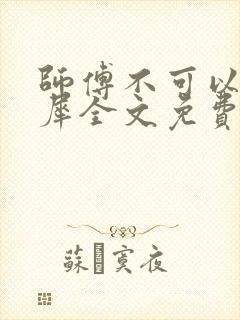 師傅不可以
犀全文免費
蘇寞夜